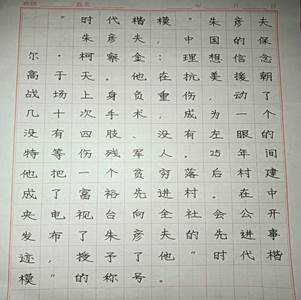 "时代楷模"朱彦夫
朱彦夫，中国的保
尔·柯察金：理想信念
高于天。他在抗美援朝
战场上身负重伤，动了
几十次手术，成为一个
没有四肢、没有左眼的
特等伤残军人。25年间
他把一个贫穷落后村建
成了富裕先进村。在中
央电视台向全社会公开
发布了朱彦夫的先进事
迹，授予了他"时代楷
模"的称号。